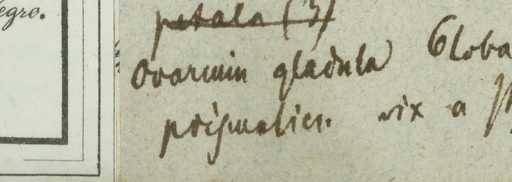 egro.
petala (3)
Ovarium gladula Globa
prismatici. vix a